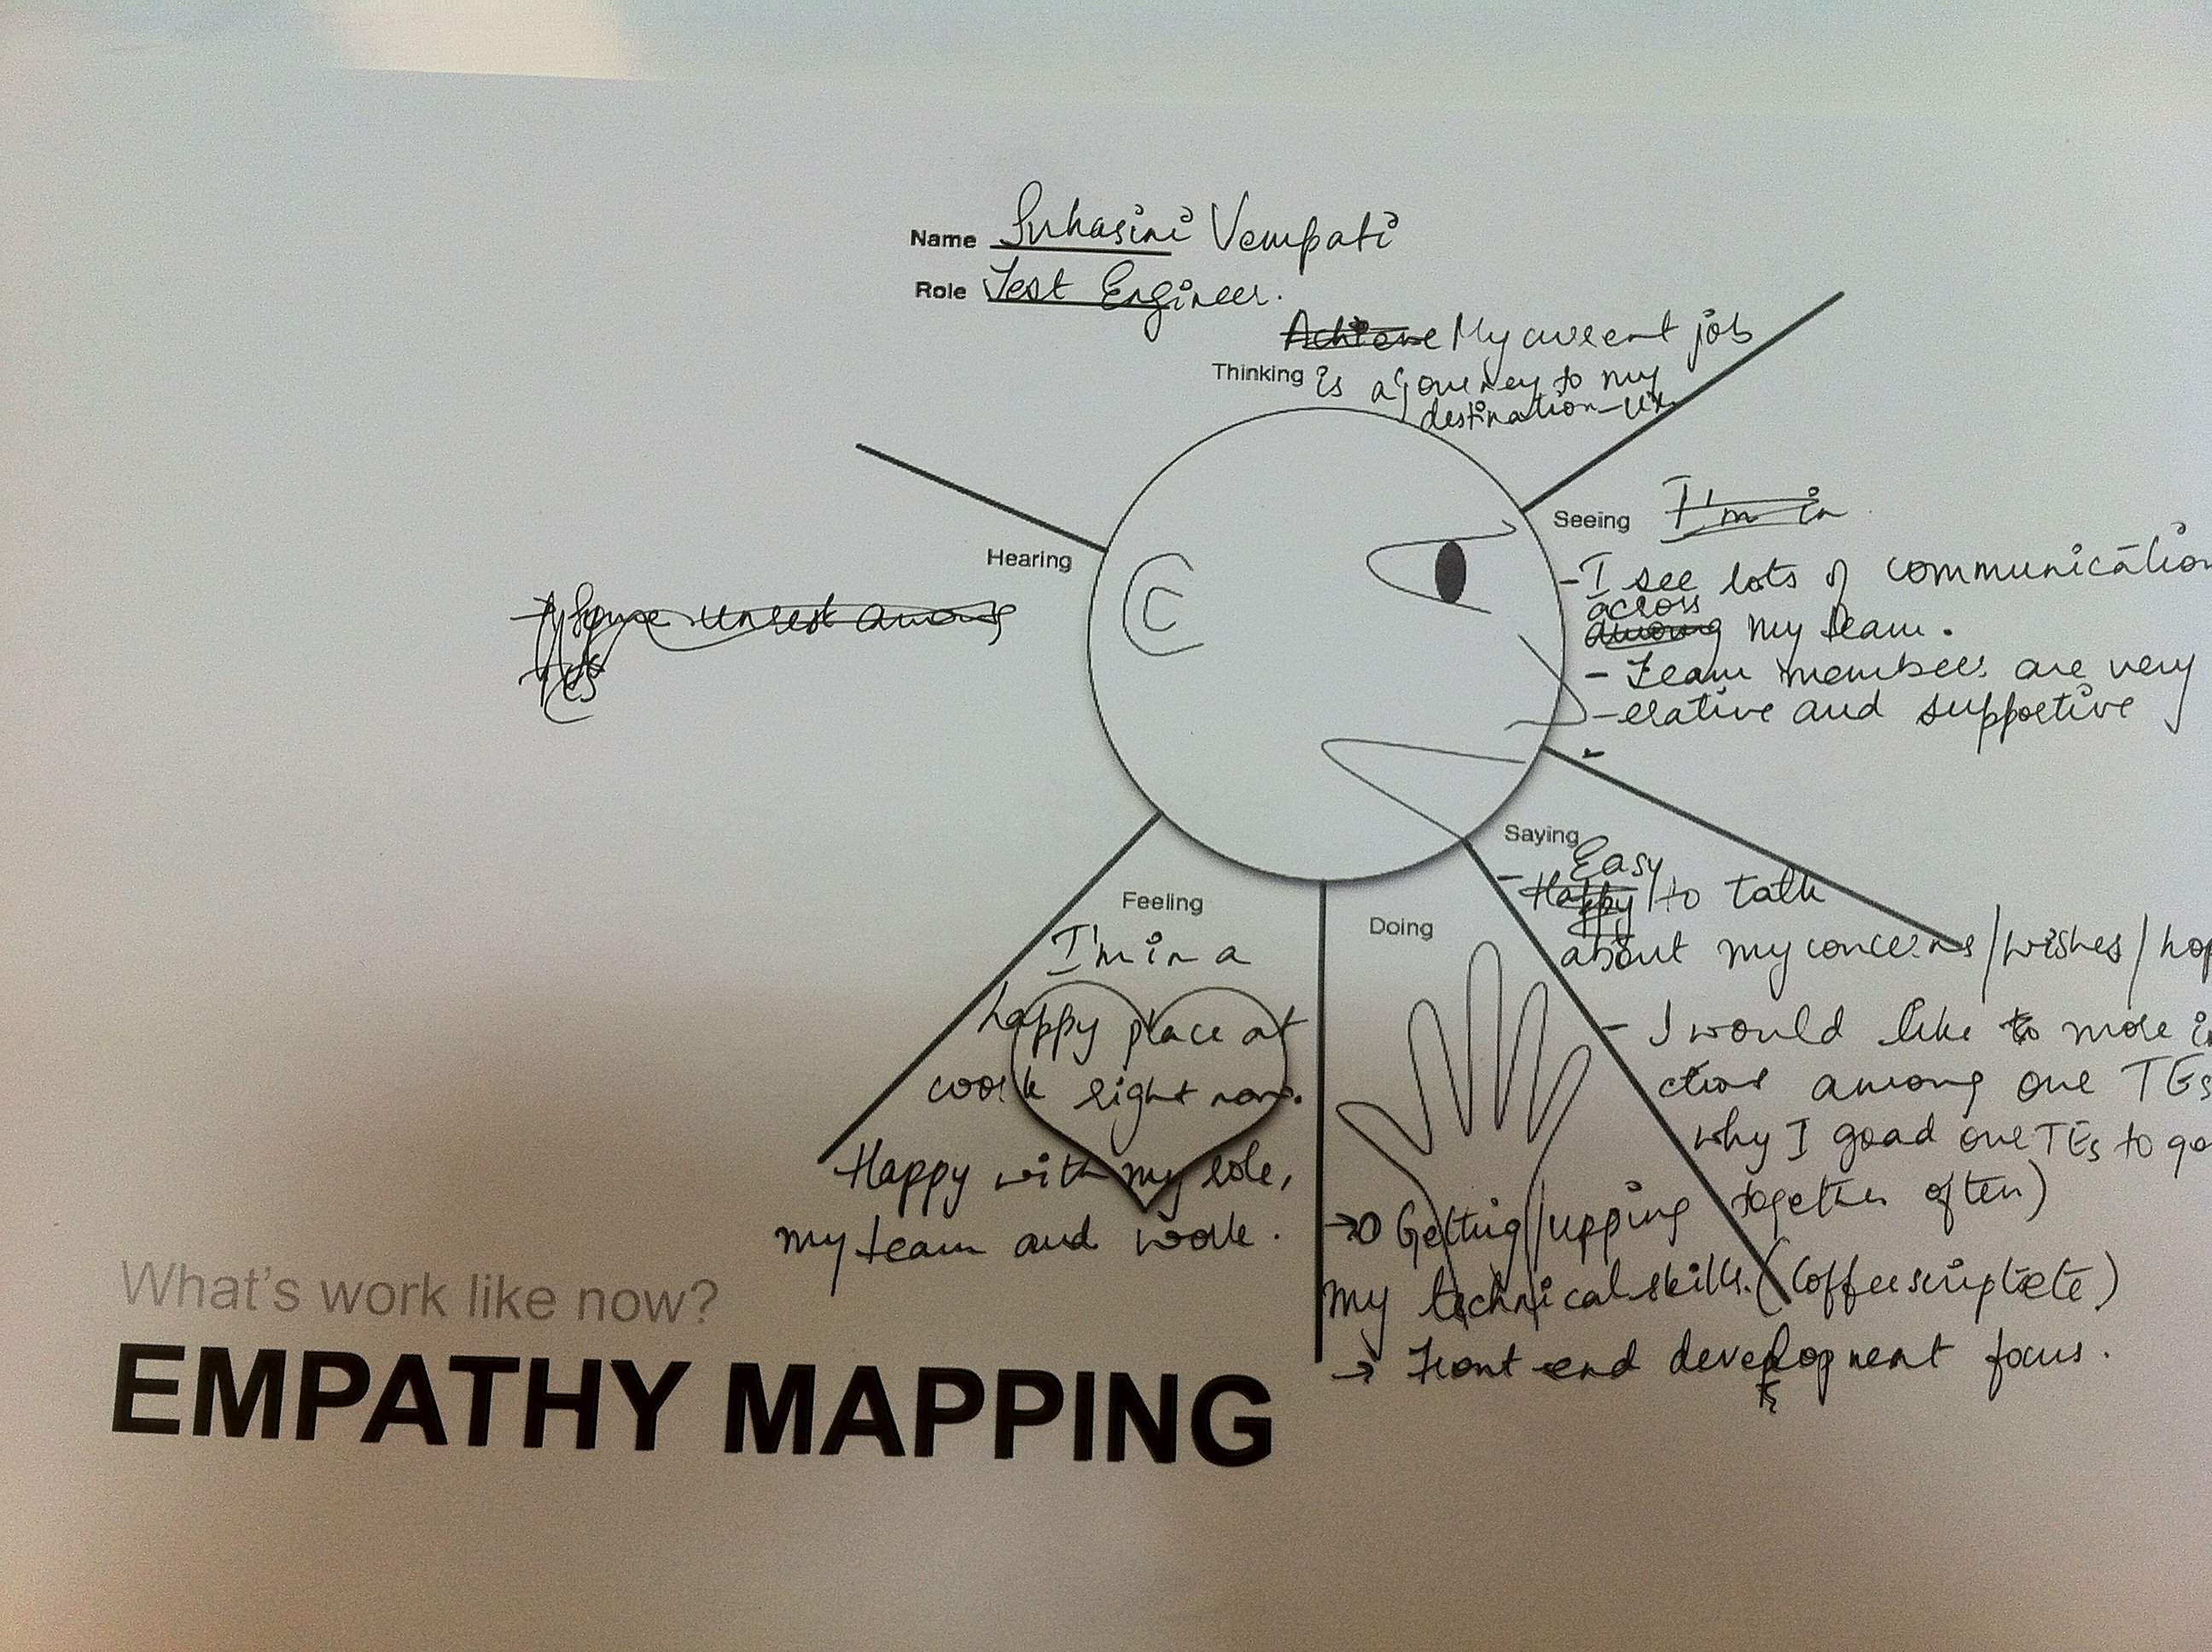 Name Suhasini Vempati
Role Test Engineer.
Achieve My current job
Thinking is a journey to my
destination - UX
Seeing I'm in
- I see lots of communication
across
among my team.
- Team members are very
-erative and supportive
-
Hearing
Some unrest among
Saying
Easy
- Happy to talk
about my concerns/wishes/hop
- I would like to more in
ctions among our TEs
why I goad our TEs to go
together often)
Feeling
I'm in a
happy place at
work right now.
Happy with my role,
my team and work.
Doing
→ Getting/upping
my technical skills. (Coffeescript etc)
→ Front-end development focus.
What's work like now?
EMPATHY MAPPING